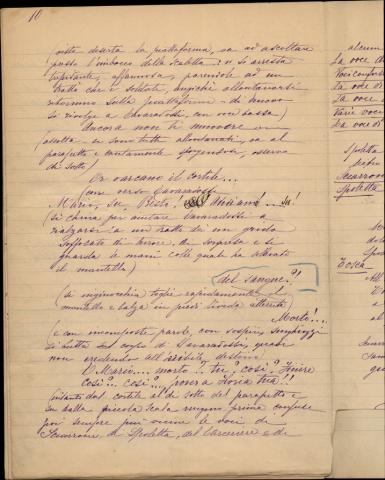 10
(vista deserta la piattaforma, va ad ascoltare
presso l'imbocco della scaletta: vi si arresta
trepidante, affannosa, parendole ad un
tratto che i soldati, anzichè allontanarsi
ritornino sulla piattaforma - di nuovo
si rivolge a Cavaradossi, con voce bassa)
Ancora non ti muovere ...
(ascolta - si sono tutti allontanati, va al
parapetto e cautamente sporgendosi, osserva
di sotto)
Or varcano il cortile...
(corre verso Cavaradossi)
Mario, su, Presto! Andiamo! .. Su!
(si china per aiutare Cavaradossi a
rialzarsi: a un tratto dà un grido
soffocato di terrore, di sorpresa e si
guarda le mani colle quali ha sollevato
il mantello)
del sangue?!
(si inginocchia toglie rapidamente il
mantello e balza in piedi livida atterrita)
Morto!...
e con incomposte parole, con sospiri, singhiozzi
si butta sul corpo di Cavaradossi, quasi
non credendo all'orribile destino
O Mario... morto .. tu? così? Finire
così?.. così?.. povera Tosca tua!!
(intanto dal cortile al di sotto del parapetto e
su dalla piccola scala vengono prima confuse
poi sempre più vicine le voci di
Sciarrone, di Spoletta, del Carceriere e di
alcuni
La voce di
Voci confuse
La voce di
La voce
Varie voci
La voce di
Spoletta
Sciarrone
Spoletta
Tosca